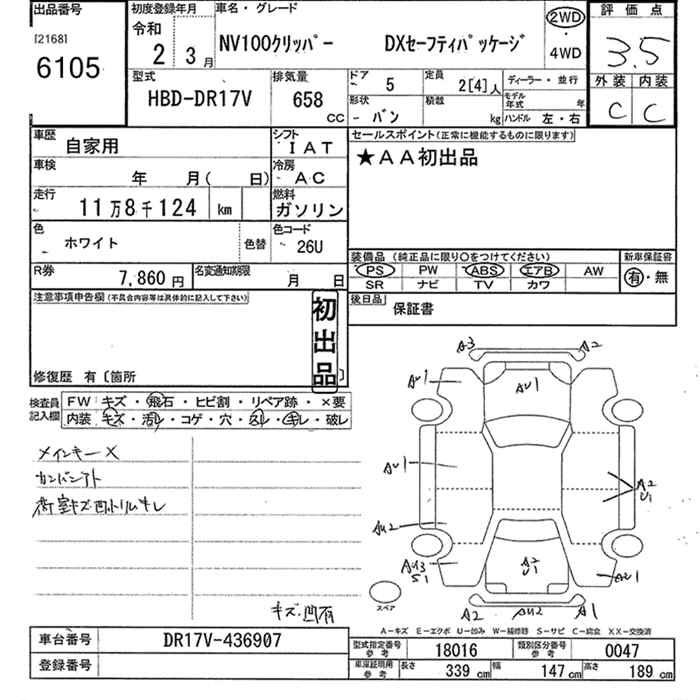 出品番号 初度登録年月 車名・グレード 評価点
[2168] 令和
6105 2 3月 NV100クリッパー DXセーフティパッケージ 2WD・4WD 3.5
型式 排気量 ドア 5 定員 2[4]人 ディーラー・並行 外装 内装
HBD-DR17V 658 CC 形状 - バン 積載 kg モデル年式 年 ハンドル 左・右 C C
車歴 自家用 シフト IAT セールスポイント(正常に機能するものに限ります)
車検 年 月( 日) 冷房 AC ★AA初出品
走行 11万8千124 km 燃料 ガソリン
色 ホワイト 色替 色コード 26U
装備品 (純正品に限り○をつけてください) 新車保証書
R券 7,860円 名変通知期限 月 日 PS PW ABS エアB AW 有・無
SR ナビ TV カワ
注意事項申告欄(不具合内容等は具体的に記入して下さい) 初出品 後日品 保証書
修復歴 有〔箇所 〕
検査員記入欄 FW キズ・飛石・ヒビ割・リペア跡・×要
内装 キズ・汚レ・コゲ・穴・スレ・キレ・破レ
メインキーX
A3 A2
AU1 AU1
AU1 A2 U1
AU2
AU3 S1 A2 U1 AU1
スペア A2 AU2 A1
A－キズ E－エクボ U－凹み W－補修跡 S－サビ C－腐食 XX－交換済
車台番号 DR17V-436907 型式指定番号 参考 18016 類別区分番号 参考 0047
登録番号 車庫証明用 参考 長さ 339 cm 幅 147 cm 高さ 189 cm